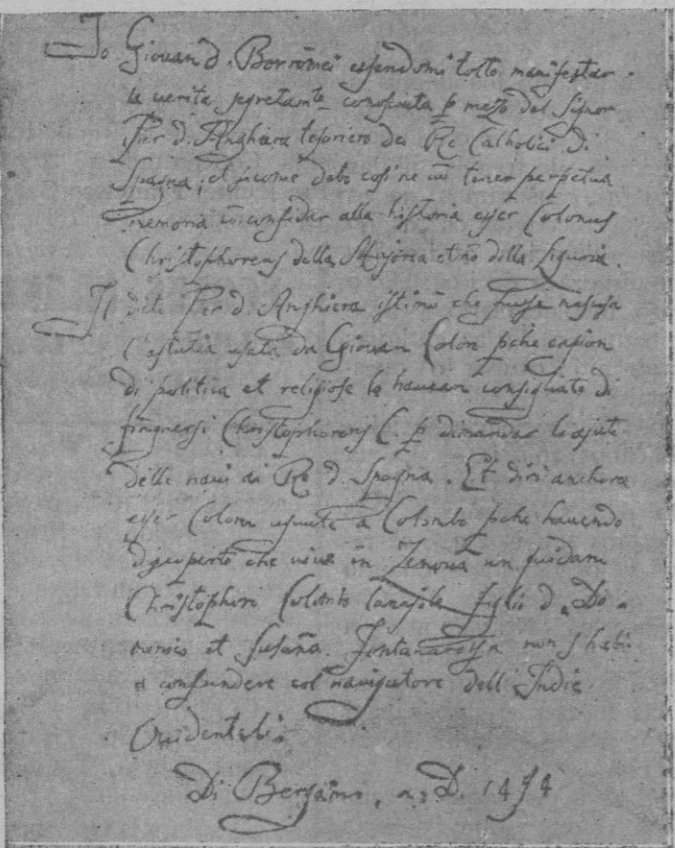 Io Giovan d. Borromei essendomi tolto manifestar
la uerita segretamte conosciuta p mezo del Signor
Pier d. Anghiera tesoriero dei Re Catholici di
Spagna; et sicome debo tener perpetua
memoria confidar alla historia esser Colonus
Christophorens della Majorca et nō della Liguria.
Il dito Pier d. Anghiera che fusse
l'astutia usata da Giovan Colon pche casion
di politica et religiose lo hauean consigliato di
fingersi Christophorens C. p dimandar lo ajuto
delle naui al Re d. Spagna. Et diri anchora
esser Colom a Colombo pche hauendo
che uiue in Zenoua un quidam
Christophoro Colombo figlio d. Do-
minico et Susaña. Fontanarossa non s habi
a confundere col nauigatore dell Indie
Ouidentalis
Di Bergamo, a. D. 1494